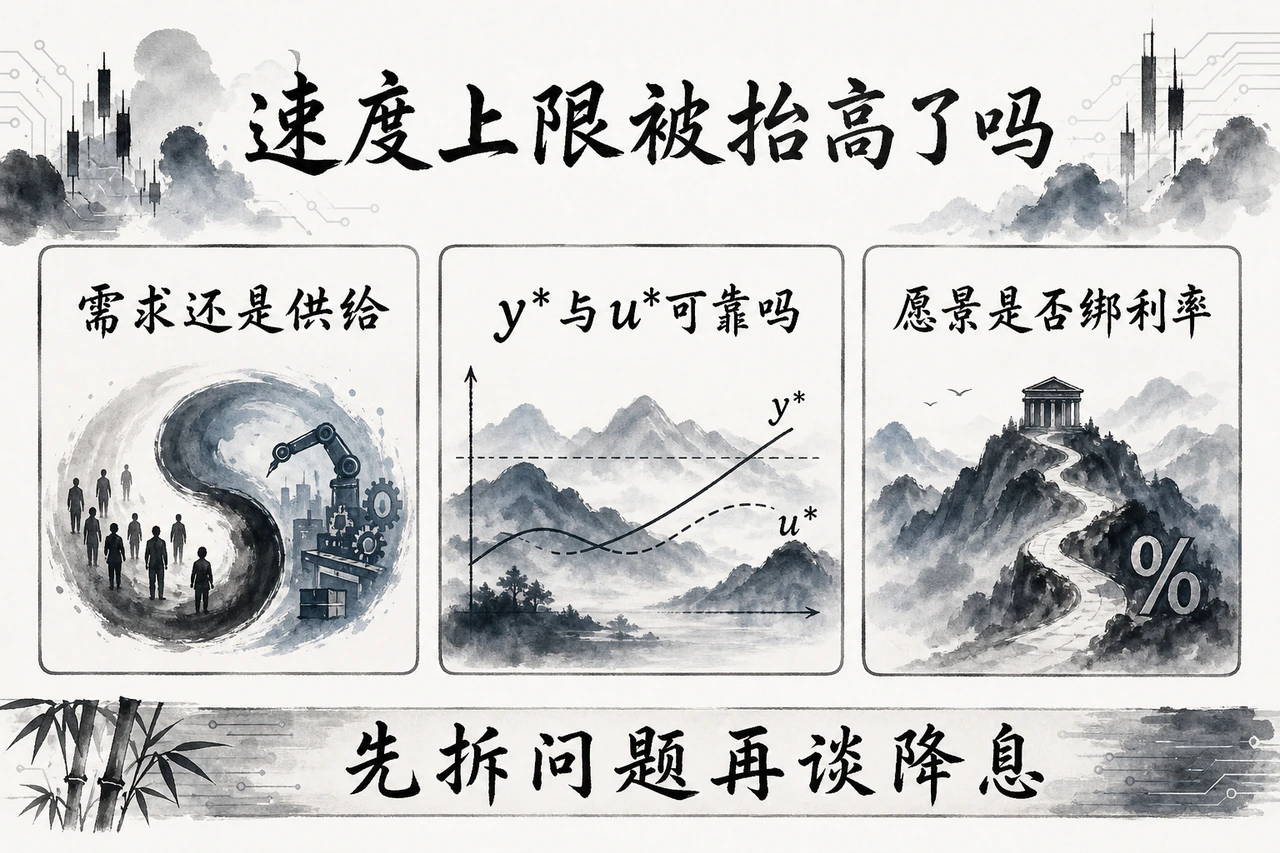 速度上限被抬高了吗
需求还是供给
y*与u*可靠吗
y*
u*
愿景是否绑利率
%
先拆问题再谈降息